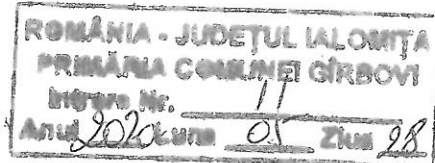 ROMÂNIA - JUDEŢUL IALOMIŢA
PRIMĂRIA COMUNEI GÎRBOVI
Intrare Nr. 11
Anul 2020 Luna 05 Ziua 28